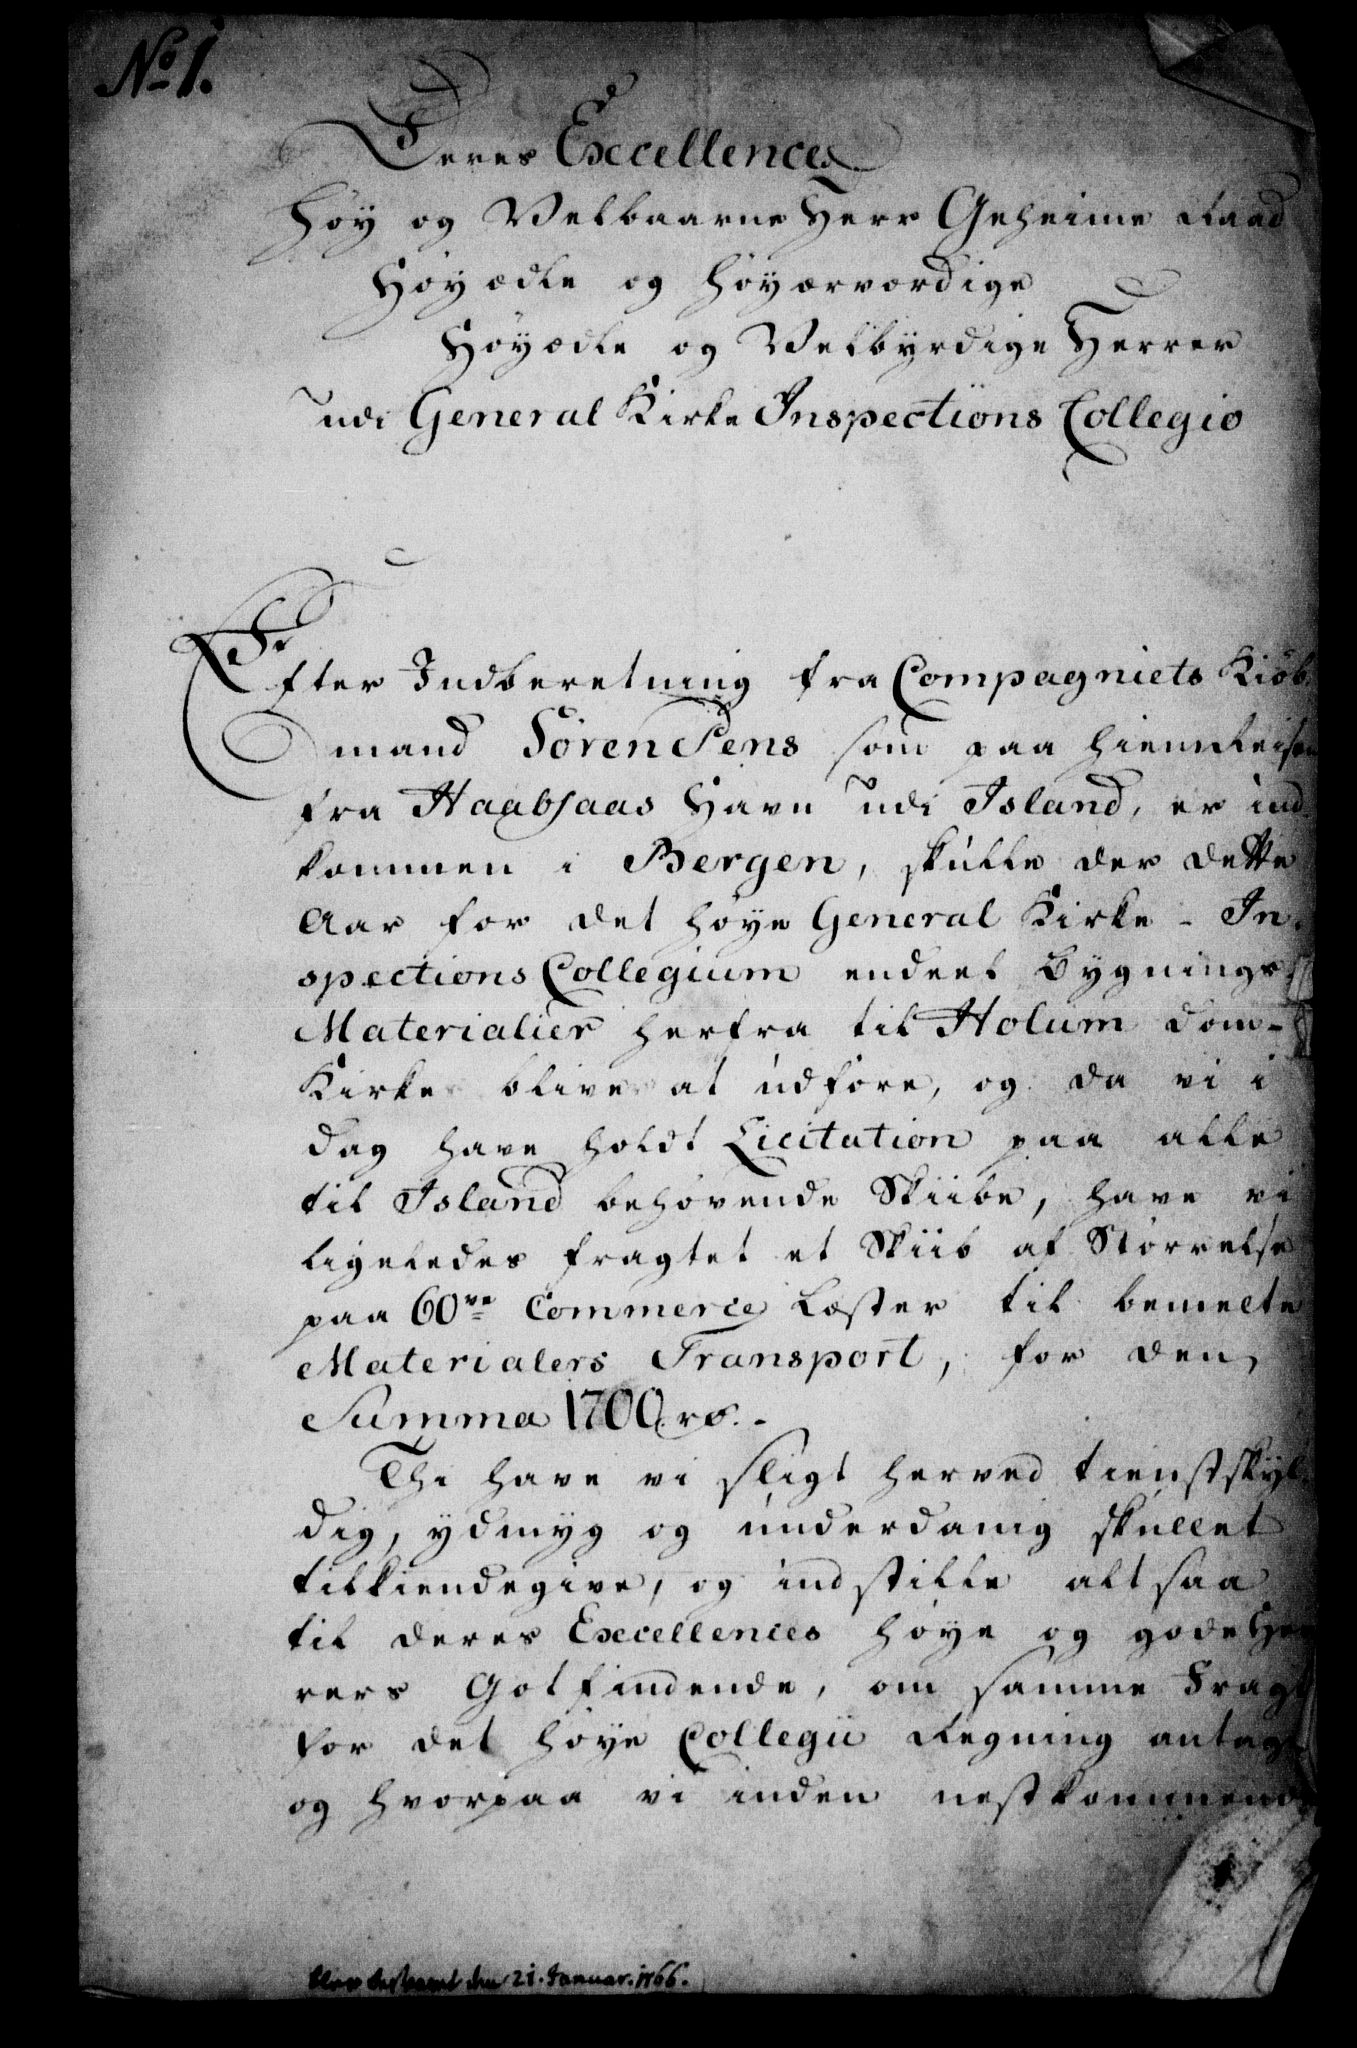 No 1.
Deres Excellence
Høy og Velbaarne Herr Geheime Raad
Høyædle og Høyærværdige
Høyædle og Velbyrdige Herrer
udi General Kirke Inspections Collegio
Efter Indberetning fra Compagniets Kiøb-
mand Søren Pens som paa hiemReisen
fra Haabsaas Havn udi Island, er ind-
kommen i Bergen, skulle der dette
Aar for det høye General Kirke-In-
spections Collegium endeel Bygnings
Materialier herfra til Holum Dom-
Kirke blive at udføre, og da vi i
Dag have holdt Licitation paa alle
til Island behøvende Skiibe, have vi
ligeledes fragtet et Skiib af Størrelse
paa 60ve Commerce Læster til bemelte
Materialers Transport, for den
Summa 1700 rd.-
Thi have vi sligt herved tienstskyl-
dig, ydmyg og underdanig skullet
tilkiendegive, og indstille alt saa
til deres Excellences høye og gode Her-
rers Gotfindende, om samme Fragt
for det høye Collegii Regning antages
og hvorpaa vi inden nestkommende
den 21. Januar. 1766.